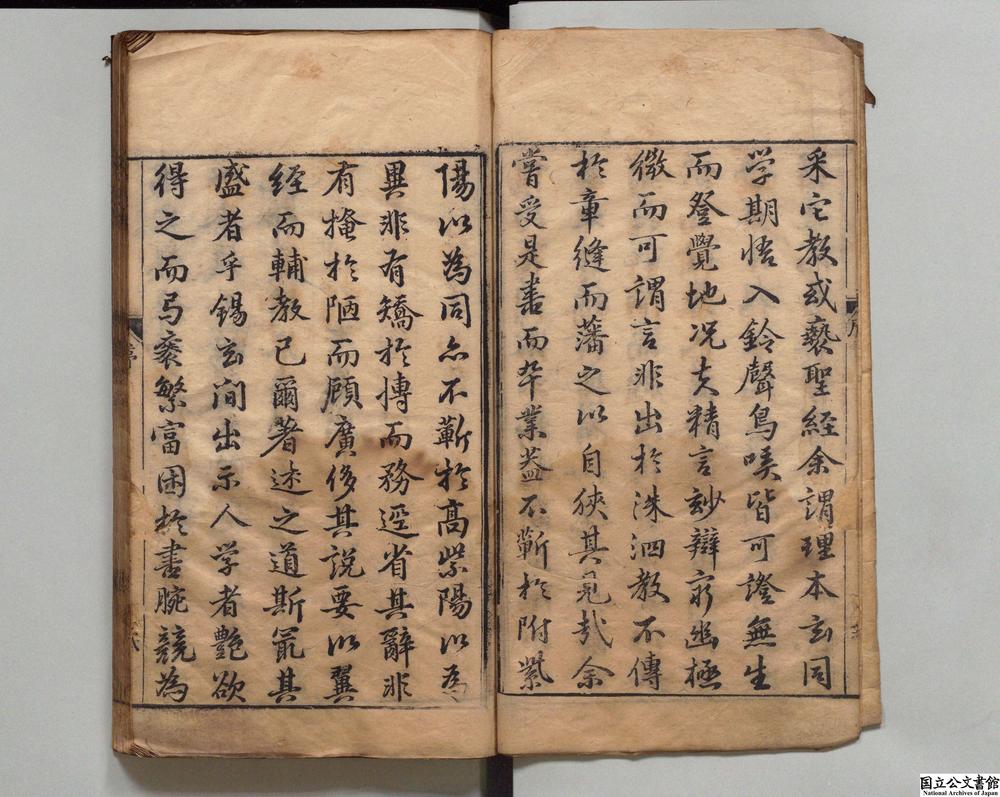 采它教或褻聖經余謂理本玄同
学期悟入鈴聲鳥唉皆可證無生
而登覺地况夫精言妙辯窮幽極
微而可謂言非出於洙泗教不傳
於章縫而藩之以自狹其見哉余
嘗受是書而卒業葢不蘄於附紫
陽以為同亦不蘄於髙紫陽以為
異非有矯於博而務逕省其辭非
有掩於陋而顧廣侈其說要以翼
経而輔教已爾著述之道斯冣其
盛者乎錫玄間出示人学者艶欲
得之而弓褒繁富困於書腕競為
序
国立公文書館
National Archives of Japan